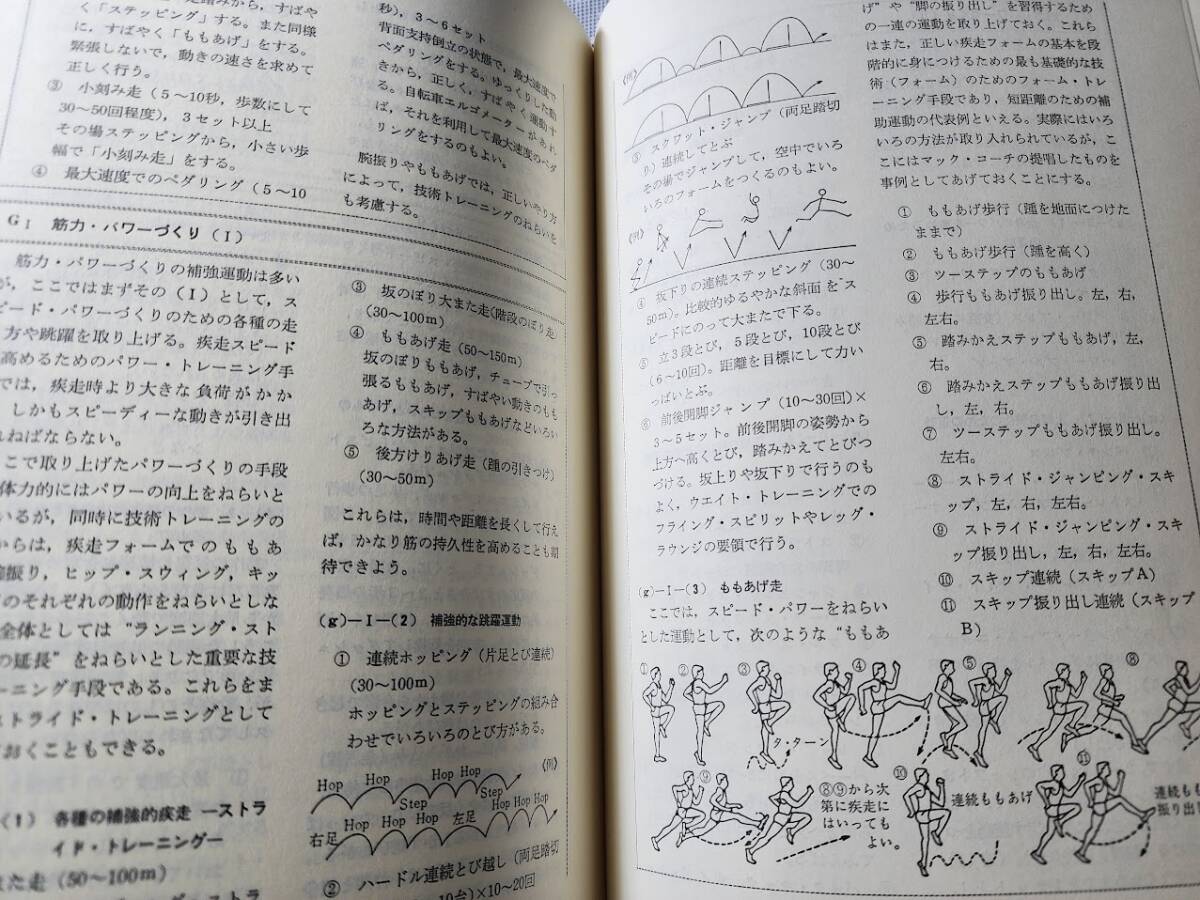 く「ステッピング」する。また同様
に，すばやく「ももあげ」をする。
緊張しないで，動きの速さを求めて
正しく行う。
③ 小刻み走（5～10秒，歩数にして
30～50回程度），3セット以上
その場ステッピングから，小さい歩
幅で「小刻み走」をする。
④ 最大速度でのペダリング（5～10
秒），3～6セット
背面支持倒立の状態で，最大速度で
ペダリングをする。ゆっくりした動
きから，正しく，すばやく運動す
る。自転車エルゴメーターがあれ
ば，それを利用して最大速度のペダ
リングをするのもよい。
腕振りやももあげでは，正しいやり方
によって，技術トレーニングのねらいを
も考慮する。
GⅠ 筋力・パワーづくり（Ⅰ）
筋力・パワーづくりの補強運動は多い
が，ここではまずその（Ⅰ）として，ス
ピード・パワーづくりのための各種の走
方や跳躍を取り上げる。疾走スピード
高めるためのパワー・トレーニング手
では，疾走時より大きな負荷がかか
しかもスピーディーな動きが引き出
ればならない。
こで取り上げたパワーづくりの手段
体力的にはパワーの向上をねらいと
いるが，同時に技術トレーニングの
からは，疾走フォームでのももあ
腕振り，ヒップ・スウィング，キッ
のそれぞれの動作をねらいとしな
全体としては“ランニング・スト
の延長”をねらいとした重要な技
ーニング手段である。これらをま
ストライド・トレーニングとして
おくこともできる。
(1) 各種の補強的疾走 ―ストラ
イド・トレーニング―
また走（50～100m）
③ 坂のぼり大また走（階段のぼり走）
（30～100m）
④ ももあげ走（50～150m）
坂のぼりももあげ，チューブで引っ
張るももあげ，すばやい動きのもも
あげ，スキップももあげなどいろい
ろな方法がある。
⑤ 後方けりあげ走（踵の引きつけ）
（30～50m）
これらは，時間や距離を長くして行え
ば，かなり筋の持久性を高めることも期
待できよう。
(g)－Ⅰ－(2) 補強的な跳躍運動
① 連続ホッピング（片足とび連続）
（30～100m）
ホッピングとステッピングの組み合
わせでいろいろのとび方がある。
Hop Hop Hop Hop 《例》
Step Step
Hop Hop Hop Hop Hop Hop
右足 左足
② ハードル連続とび越し（両足踏切
10台）×10～20回
《例》
③ スクワット・ジャンプ（両足踏切
り）連続してとぶ
その場でジャンプして，空中でいろ
いろのフォームをつくるのもよい。
《例》
④ 坂下りの連続ステッピング（30～
50m）。比較的ゆるやかな斜面をス
ピードにのって大またで下る。
⑤ 立3段とび，5段とび，10段とび
（6～10回）。距離を目標にして力い
っぱいとぶ。
⑥ 前後開脚ジャンプ（10～30回）×
3～5セット。前後開脚の姿勢から
上方へ高くとび，踏みかえてとびつ
づける。坂上りや坂下りで行うのも
よく，ウエイト・トレーニングでの
フライング・スピリットやレッグ・
ラウンジの要領で行う。
(g)－Ⅰ－(3) ももあげ走
ここでは，スピード・パワーをねらい
とした運動として，次のような“ももあ
げ”や“脚の振り出し”を習得するため
の一連の運動を取り上げておく。これら
はまた，正しい疾走フォームの基本を段
階的に身につけるための最も基礎的な技
術（フォーム）のためのフォーム・トレ
ーニング手段であり，短距離のための補
助運動の代表例といえる。実際にはいろ
いろの方法が取り入れられているが，こ
こにはマック・コーチの提唱したものを
事例としてあげておくことにする。
① ももあげ歩行（踵を地面につけた
ままで）
② ももあげ歩行（踵を高く）
③ ツーステップのももあげ
④ 歩行ももあげ振り出し。左，右，
左右。
⑤ 踏みかえステップももあげ，左，
右。
⑥ 踏みかえステップももあげ振り出
し，左，右。
⑦ ツーステップももあげ振り出し。
左右。
⑧ ストライド・ジャンピング・スキ
ップ，左，右，左右。
⑨ ストライド・ジャンピング・スキ
ップ振り出し，左，右，左右。
⑩ スキップ連続（スキップA）
⑪ スキップ振り出し連続（スキップ
B）
① ② ③ ④ ⑤ ⑧
タ・ターン
⑨ ⑩ ⑪
⑧⑨から次
第に疾走に
はいっても
よい。
連続ももあげ
連続もも
振り出し